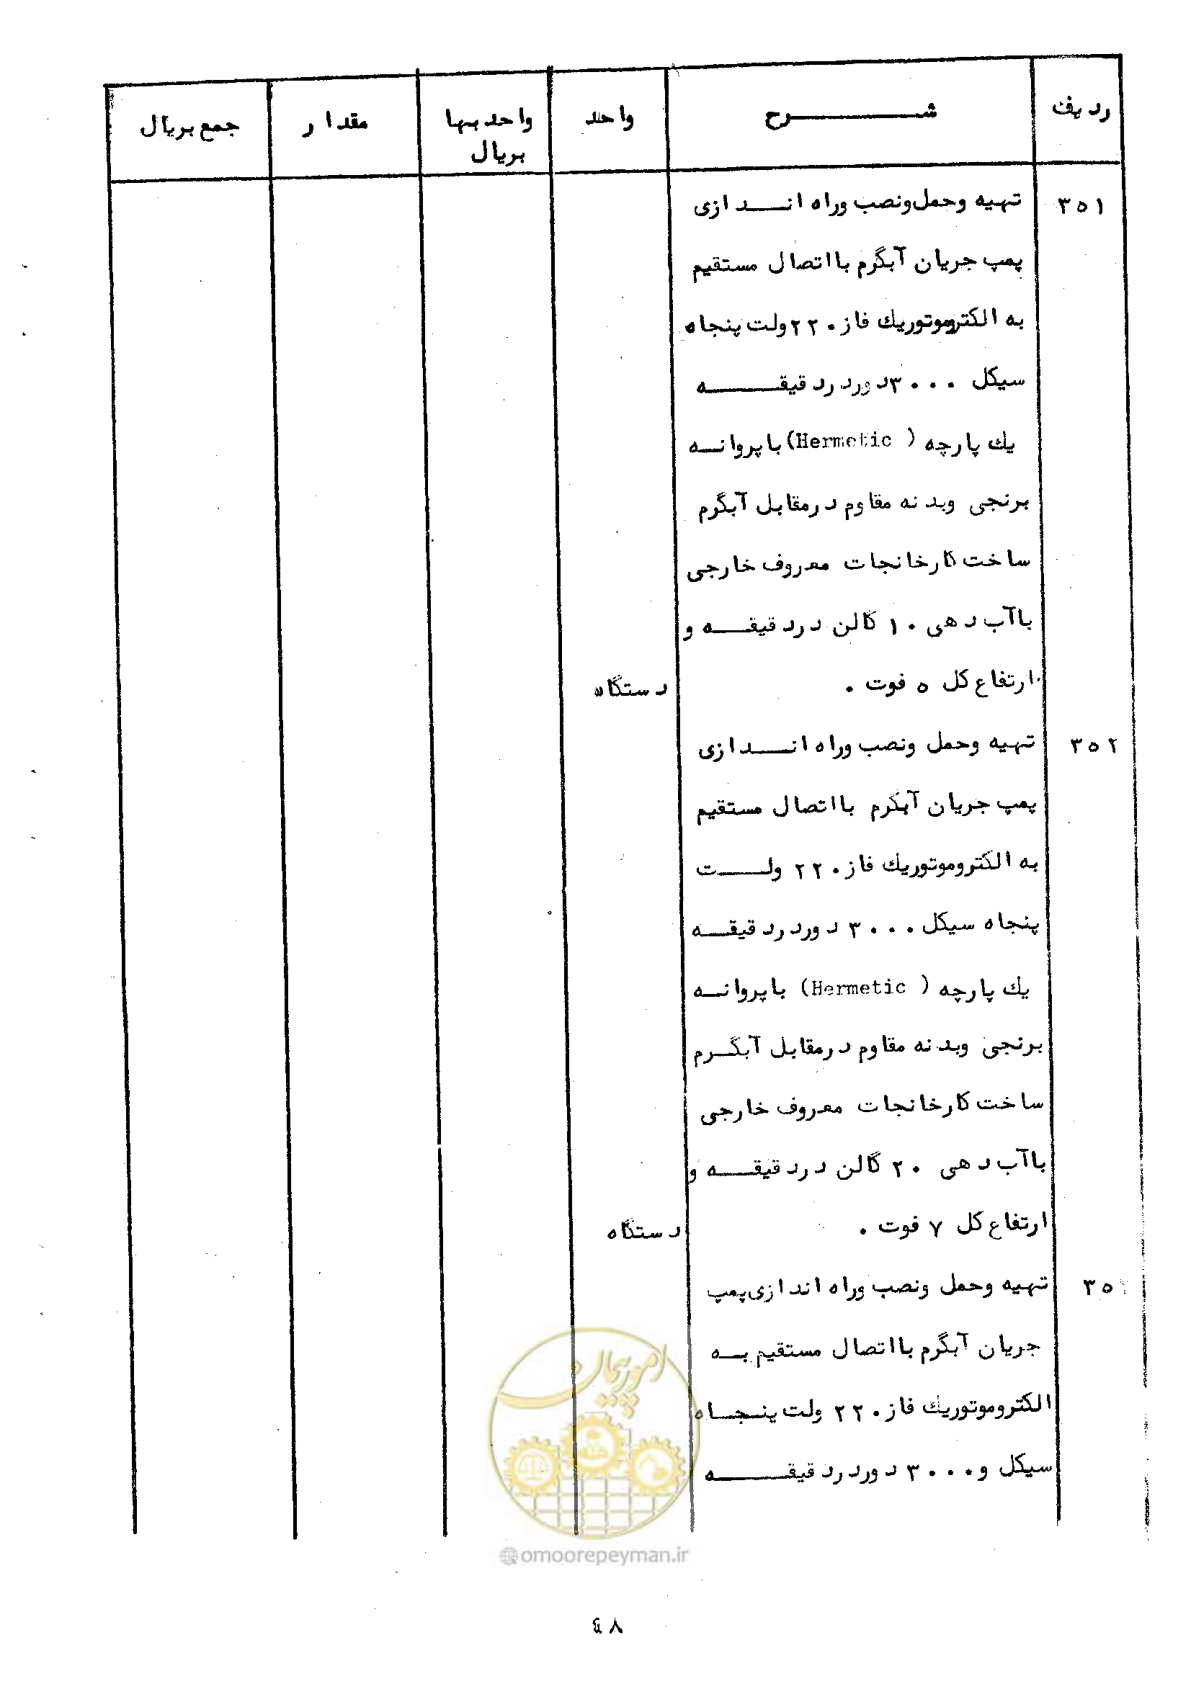 ردیف شرح واحد واحد بها مقدار جمع بریال
بریال
۳۵۱ تهیه وحمل ونصب وراه اندازی
پمپ جریان آبگرم بااتصال مستقیم
به الکتروموتوریك فاز ۲۲۰ ولت پنجاه
سیکل ۳۰۰۰ دوردردقیقه
یك پارچه (Hermetic) باپروانه
برنجی وبدنه مقاوم درمقابل آبگرم
ساخت کارخانجات معروف خارجی
باآب دهی ۱۰ گالن دردقیقه و
ارتفاع کل ۵ فوت . دستگاه
۳۵۲ تهیه وحمل ونصب وراه اندازی
پمپ جریان آبگرم بااتصال مستقیم
به الکتروموتوریك فاز ۲۲۰ ولت
پنجاه سیکل ۳۰۰۰ دوردردقیقه
یك پارچه (Hermetic) باپروانه
برنجی وبدنه مقاوم درمقابل آبگرم
ساخت کارخانجات معروف خارجی
باآب دهی ۲۰ گالن دردقیقه و
ارتفاع کل ۷ فوت . دستگاه
تهیه وحمل ونصب وراه اندازی پمپ
جریان آبگرم بااتصال مستقیم به
الکتروموتوریك فاز ۲۲۰ ولت پنجاه
سیکل و ۳۰۰۰ دوردردقیقه
امور پیمان
@omoorepeyman.ir
٤٨